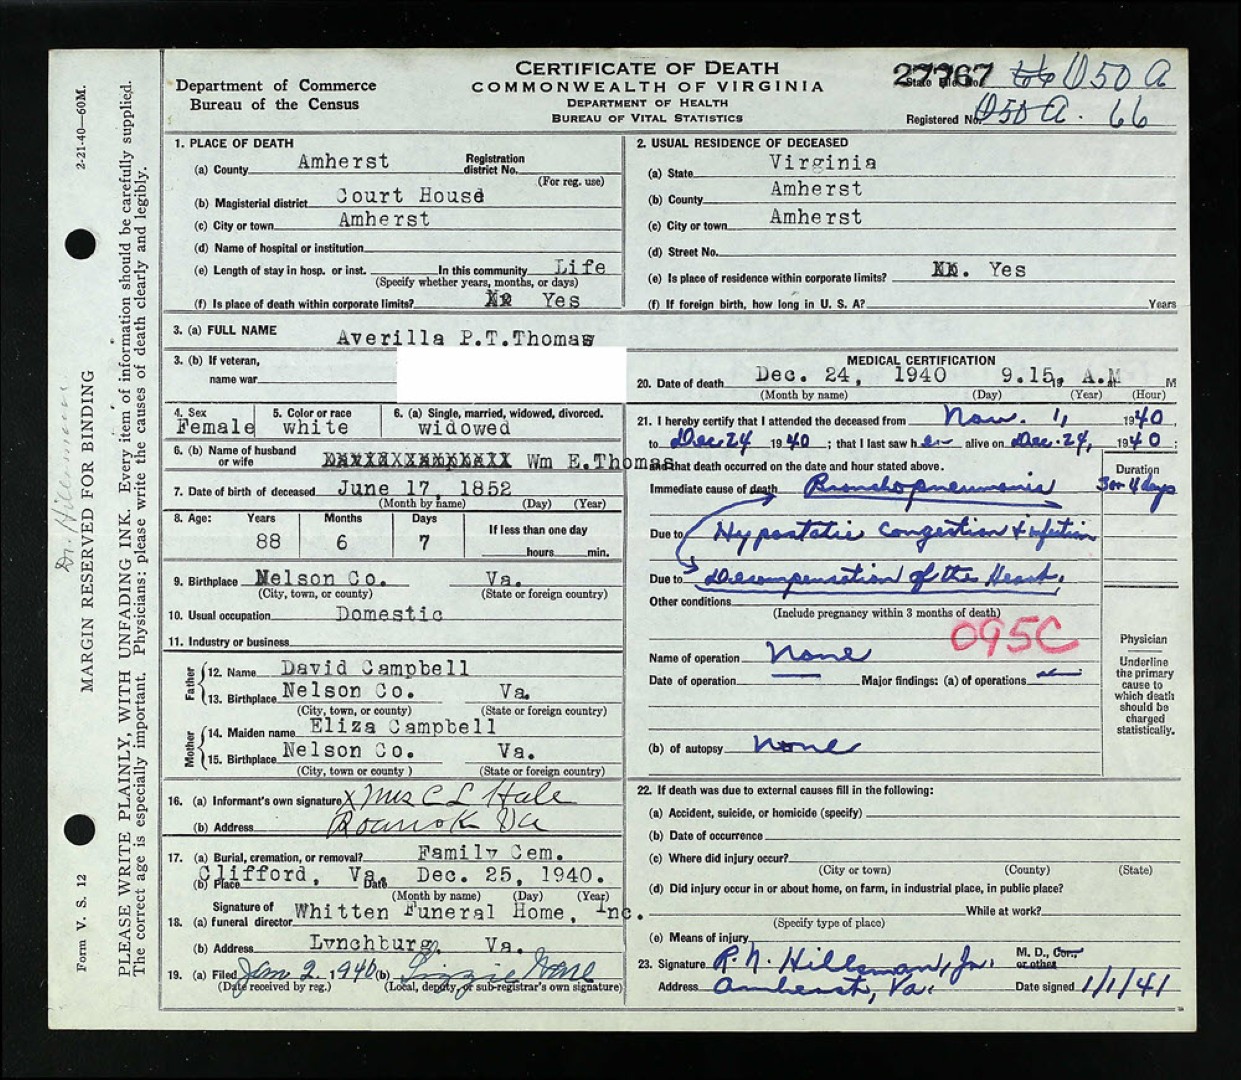 CERTIFICATE OF DEATH
COMMONWEALTH OF VIRGINIA
DEPARTMENT OF HEALTH
BUREAU OF VITAL STATISTICS
Department of Commerce
Bureau of the Census
27767 D50 A
State File No.
Registered No. D50 A. 66
1. PLACE OF DEATH
(a) County Amherst Registration district No.
(For reg. use)
(b) Magisterial district Court House
(c) City or town Amherst
(d) Name of hospital or institution
(e) Length of stay in hosp. or inst. In this community Life
(Specify whether years, months, or days)
(f) Is place of death within corporate limits? Yes
2. USUAL RESIDENCE OF DECEASED
(a) State Virginia
(b) County Amherst
(c) City or town Amherst
(d) Street No.
(e) Is place of residence within corporate limits? Yes
(f) If foreign birth, how long in U. S. A? Years
3. (a) FULL NAME Averilla P.T.Thomas
3. (b) If veteran,
name war
4. Sex Female
5. Color or race white
6. (a) Single, married, widowed, divorced. widowed
6. (b) Name of husband or wife Wm E.Thomas
7. Date of birth of deceased June 17, 1852
(Month by name) (Day) (Year)
8. Age: Years Months Days If less than one day
88 6 7 hours min.
9. Birthplace Nelson Co. Va.
(City, town, or county) (State or foreign country)
10. Usual occupation Domestic
11. Industry or business
Father
12. Name David Campbell
13. Birthplace Nelson Co. Va.
(City, town, or county) (State or foreign country)
Mother
14. Maiden name Eliza Campbell
15. Birthplace Nelson Co. Va.
(City, town or county ) (State or foreign country)
16. (a) Informant's own signature X Mrs C L Hale
(b) Address Roanok Va
17. (a) Burial, cremation, or removal? Family Cem.
(b) Place Clifford, Va. Date Dec. 25, 1940.
(Month by name) (Day) (Year)
18. (a) Signature of funeral director Whitten Funeral Home, Inc.
(b) Address Lynchburg, Va.
19. (a) Filed Jan 2 1940 (b) Lizzie
(Date received by reg.) (Local, deputy, or sub-registrar's own signature)
MEDICAL CERTIFICATION
20. Date of death Dec. 24, 1940 9.15, A.M M
(Month by name) (Day) (Year) (Hour)
21. I hereby certify that I attended the deceased from Nov. 1, 1940
to Dec 24 1940 ; that I last saw her alive on Dec. 24, 1940 ;
and that death occurred on the date and hour stated above.
Duration
Immediate cause of death Bronchopneumonia 3 or 4 days
Due to Hypostatic Congestion & infection
Due to Decompensation of the Heart.
Other conditions
(Include pregnancy within 3 months of death)
095C
Name of operation None
Date of operation Major findings: (a) of operations
(b) of autopsy none
Physician
Underline
the primary
cause to
which death
should be
charged
statistically.
22. If death was due to external causes fill in the following:
(a) Accident, suicide, or homicide (specify)
(b) Date of occurrence
(c) Where did injury occur?
(City or town) (County) (State)
(d) Did injury occur in or about home, on farm, in industrial place, in public place?
While at work?
(Specify type of place)
(e) Means of injury
23. Signature R. N. Hillsman, Jr. M. D., Cor., or other
Address Amherst, Va. Date signed 1/1/41
2-21-40—60M.
MARGIN RESERVED FOR BINDING
Form V. S. 12
PLEASE WRITE PLAINLY, WITH UNFADING INK. Every item of information should be carefully supplied.
The correct age is especially important. Physicians: please write the causes of death clearly and legibly.
Dr. Hillsman